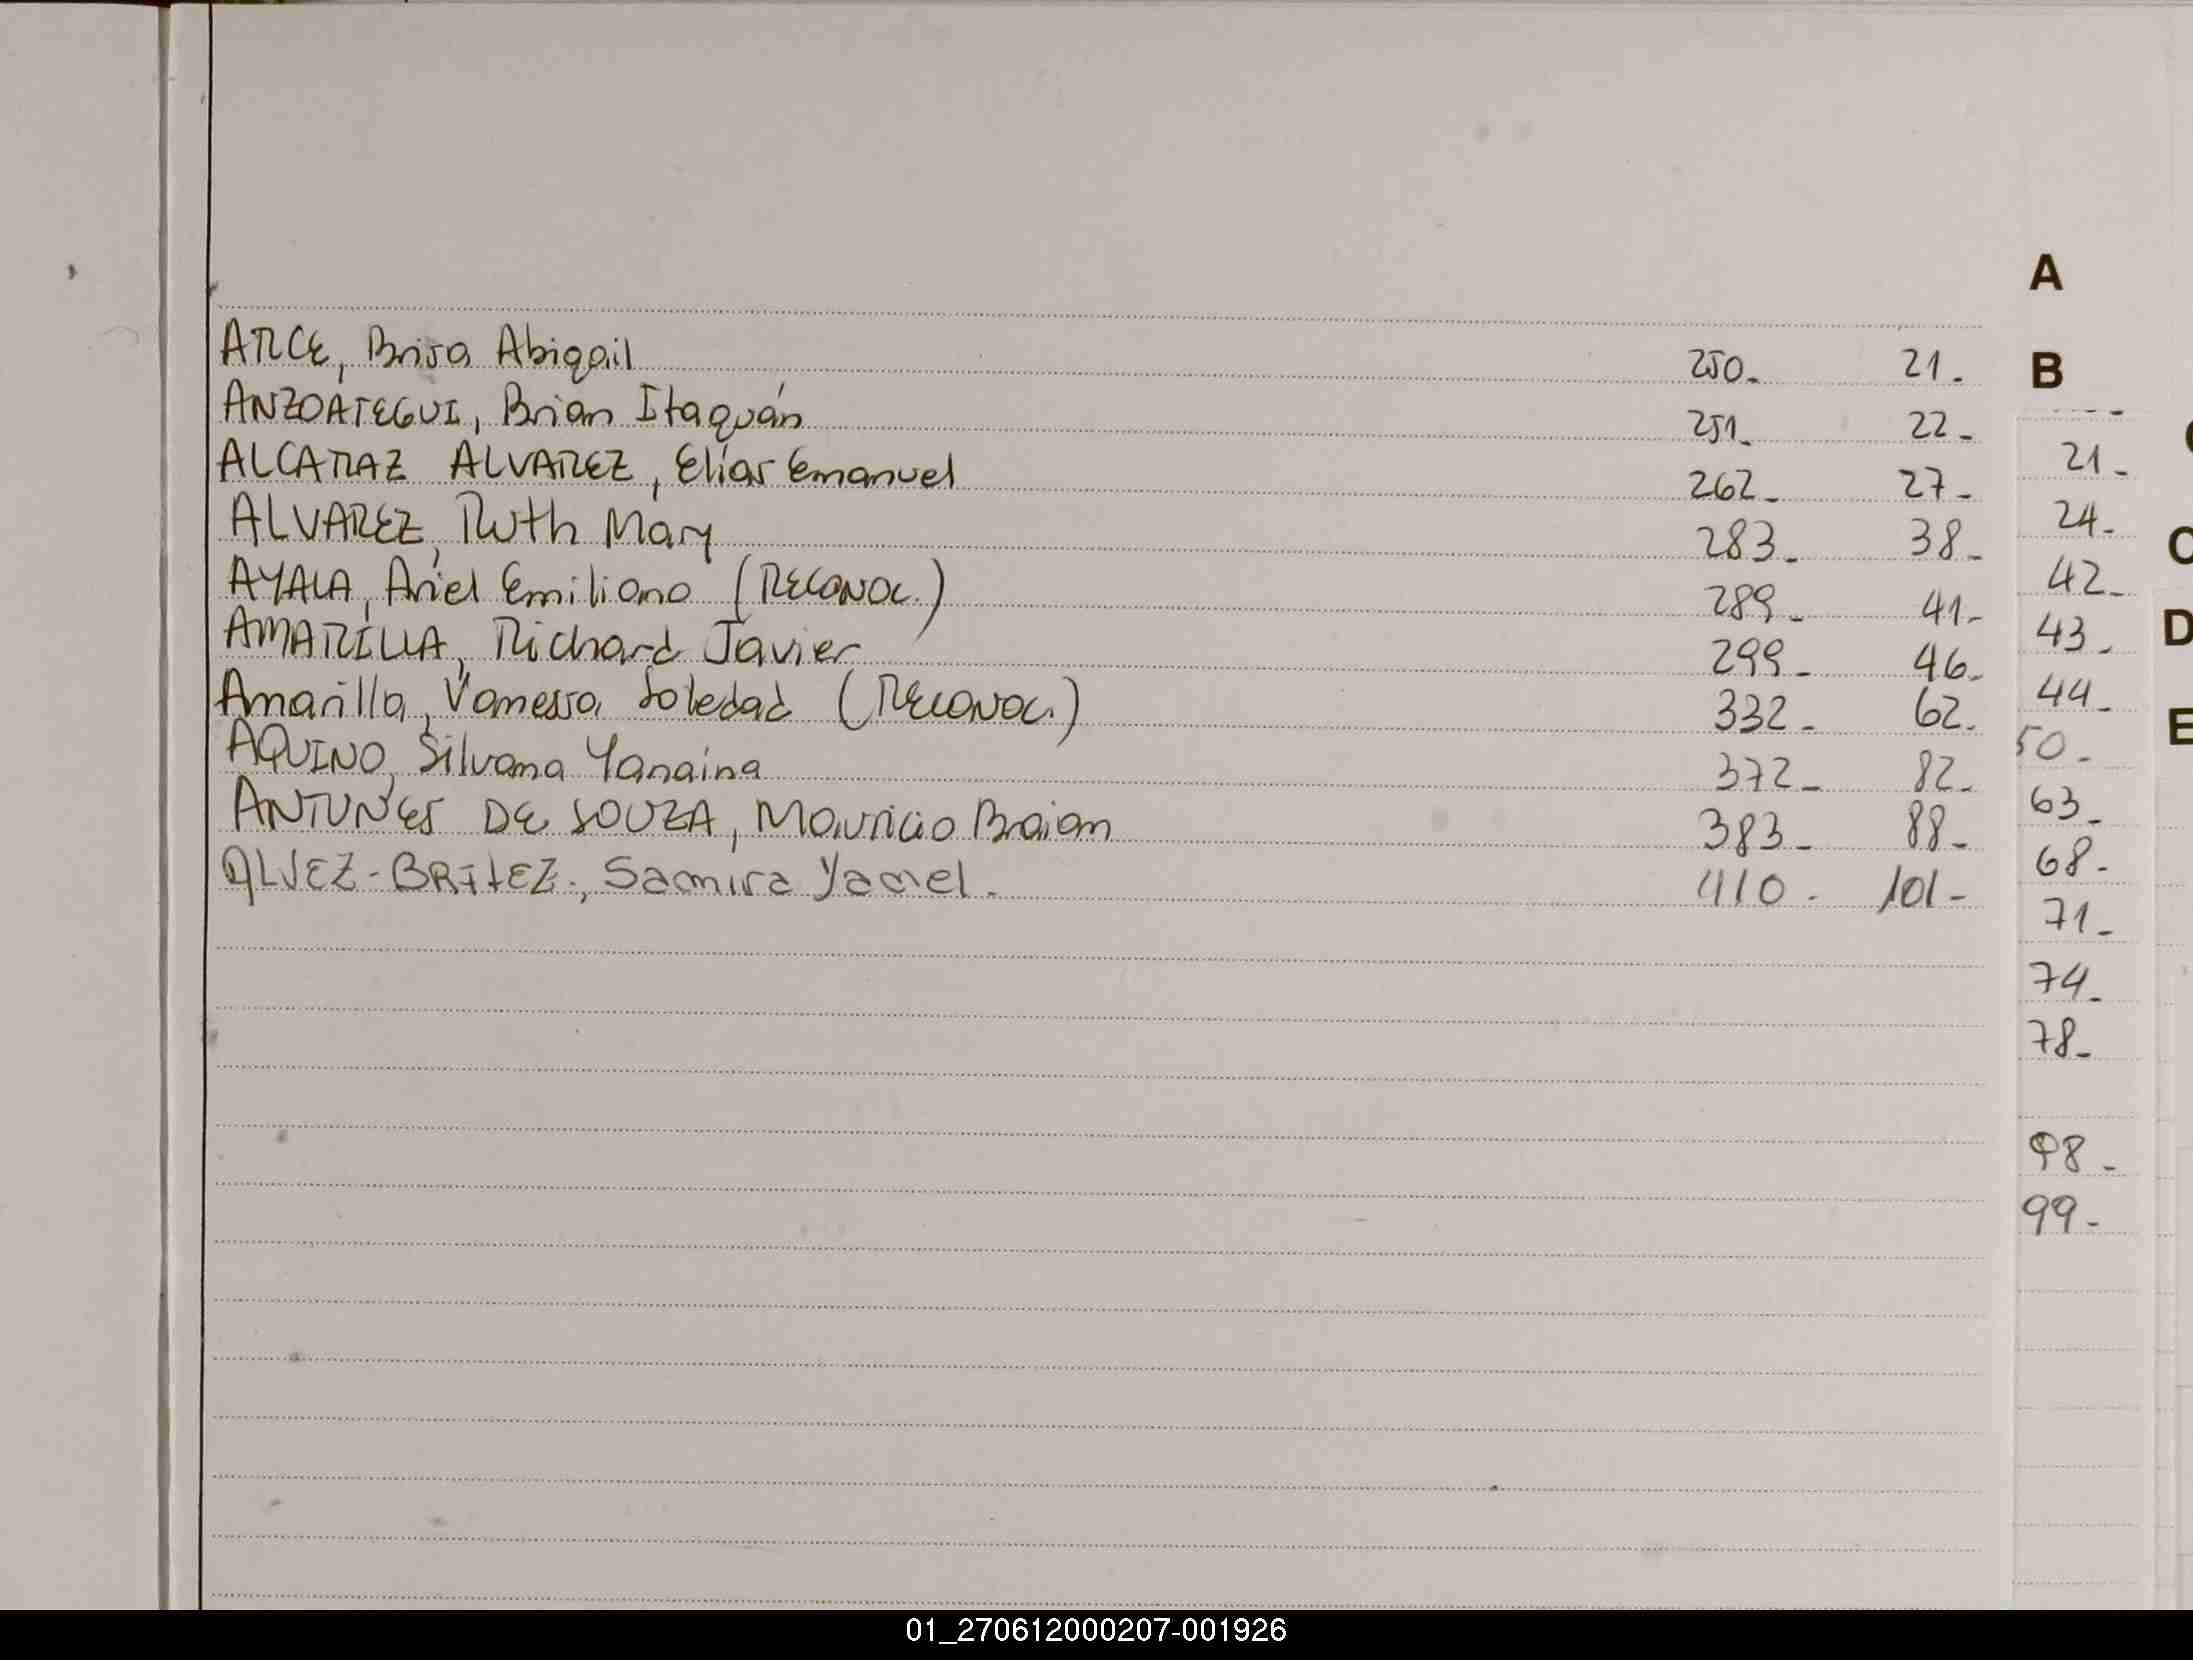 A
ARCE, Brisa Abigail 250- 21-
B
ANZOATEGUI, Brian Itaquán 251- 22-
ALCARAZ ALVAREZ, Elías Emanuel 262- 27-
21-
ALVAREZ, Ruth Mary 283- 38-
24-
C
AYALA, Ariel Emiliano (RECONOC.) 289- 41-
42-
AMARILLA, Richard Javier 299- 46-
43-
D
Amarilla, Vanessa Soledad (RECONOC.) 332- 62-
44-
E
AQUINO, Silvana Yanaina 372- 82-
50-
ANTUNES DE SOUZA, Mauricio Braian 383- 88-
63-
ALVEZ-BRITEZ-, Samira Yamel- 410- 101-
68-
71-
74-
78-
98-
99-
01_270612000207-001926